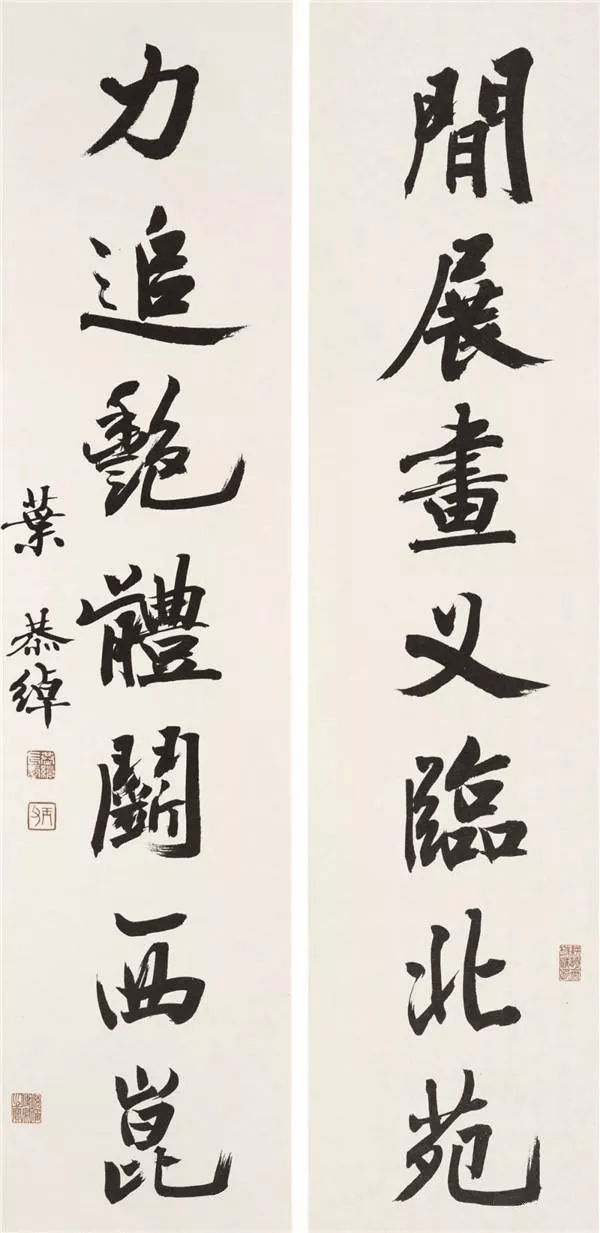 間展畫叉臨北苑
力追艷體鬭西崑
葉恭綽